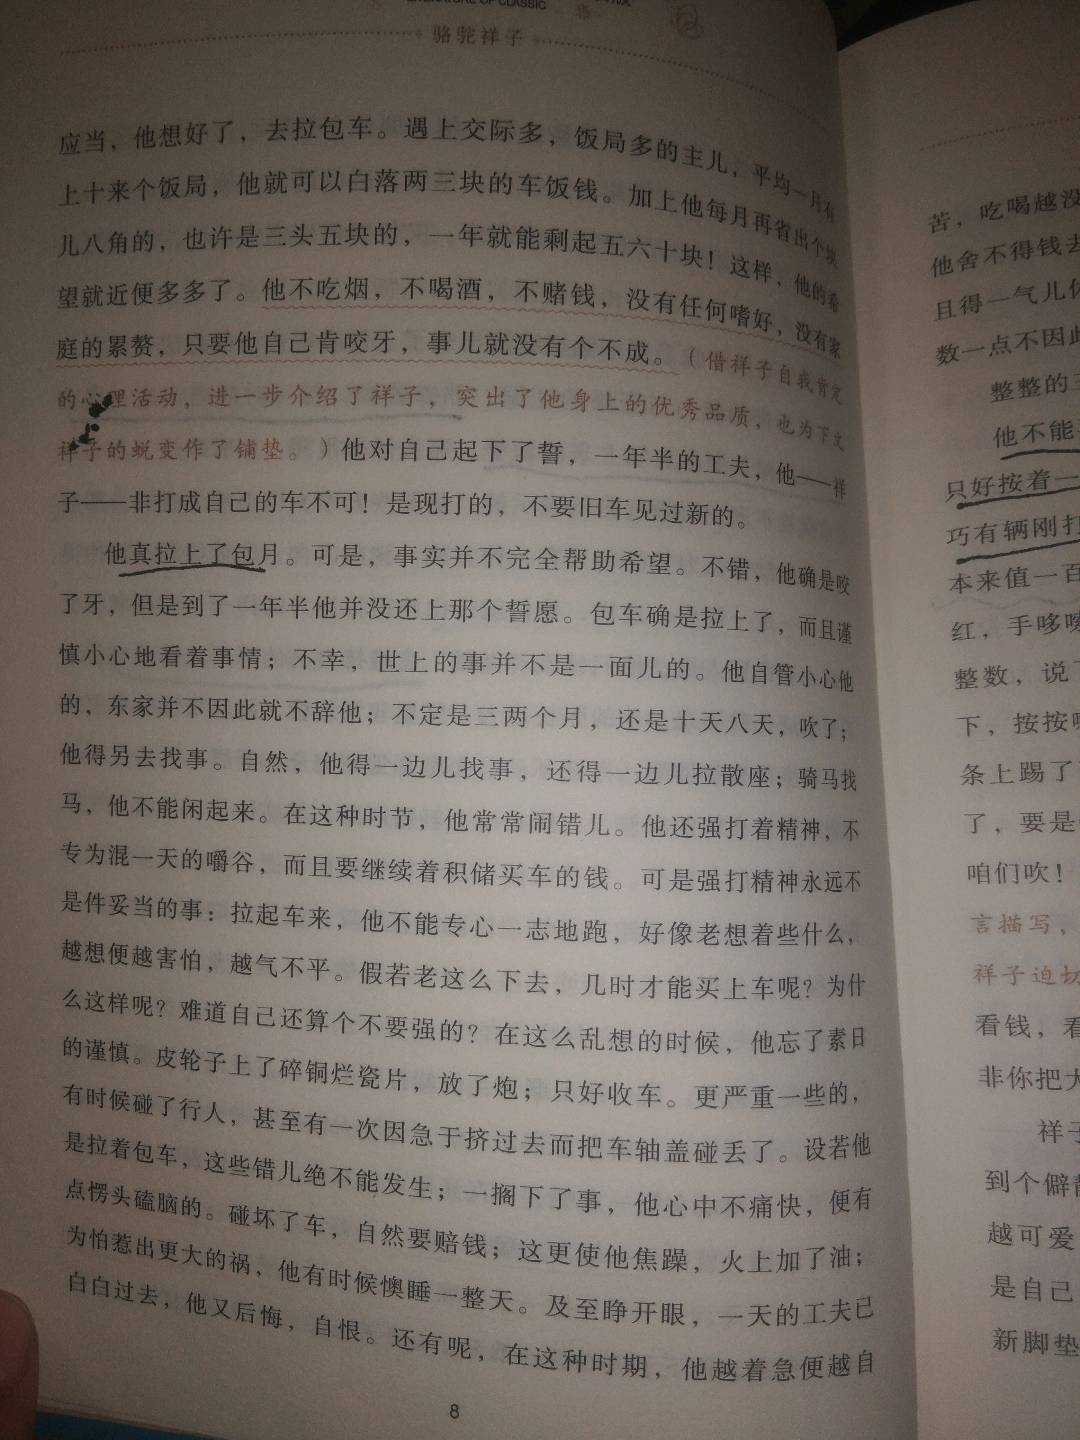 LITERATURE OF CLASSIC
骆驼祥子
应当，他想好了，去拉包车。遇上交际多，饭局多的主儿，平均一月有
上十来个饭局，他就可以白落两三块的车饭钱。加上他每月再省出个块
儿八角的，也许是三头五块的，一年就能剩起五六十块！这样，他的希
望就近便多多了。他不吃烟，不喝酒，不赌钱，没有任何嗜好，没有家
庭的累赘，只要他自己肯咬牙，事儿就没有个不成。（借祥子自我肯定
的心理活动，进一步介绍了祥子，突出了他身上的优秀品质，也为下文
祥子的蜕变作了铺垫。）他对自己起下了誓，一年半的工夫，他——祥
子——非打成自己的车不可！是现打的，不要旧车见过新的。
他真拉上了包月。可是，事实并不完全帮助希望。不错，他确是咬
了牙，但是到了一年半他并没还上那个誓愿。包车确是拉上了，而且谨
慎小心地看着事情；不幸，世上的事并不是一面儿的。他自管小心他
的，东家并不因此就不辞他；不定是三两个月，还是十天八天，吹了；
他得另去找事。自然，他得一边儿找事，还得一边儿拉散座；骑马找
马，他不能闲起来。在这种时节，他常常闹错儿。他还强打着精神，不
专为混一天的嚼谷，而且要继续着积储买车的钱。可是强打精神永远不
是件妥当的事：拉起车来，他不能专心一志地跑，好像老想着些什么，
越想便越害怕，越气不平。假若老这么下去，几时才能买上车呢？为什
么这样呢？难道自己还算个不要强的？在这么乱想的时候，他忘了素日
的谨慎。皮轮子上了碎铜烂瓷片，放了炮；只好收车。更严重一些的，
有时候碰了行人，甚至有一次因急于挤过去而把车轴盖碰丢了。设若他
是拉着包车，这些错儿绝不能发生；一搁下了事，他心中不痛快，便有
点愣头磕脑的。碰坏了车，自然要赔钱；这更使他焦躁，火上加了油；
为怕惹出更大的祸，他有时候懊睡一整天。及至睁开眼，一天的工夫已
白白过去，他又后悔，自恨。还有呢，在这种时期，他越着急便越自
8
苦，吃喝越没
他舍不得钱去
且得一气儿
数一点不因此
整整的三
他不能
只好按着一
巧有辆刚打
本来值一百
红，手哆嗦
整数，说
下，按按
条上踢了
了，要是
咱们吹！
言描写，
祥子迫切
看钱，看
非你把大
祥子
到个僻静
越可爱
是自己
新脚垫